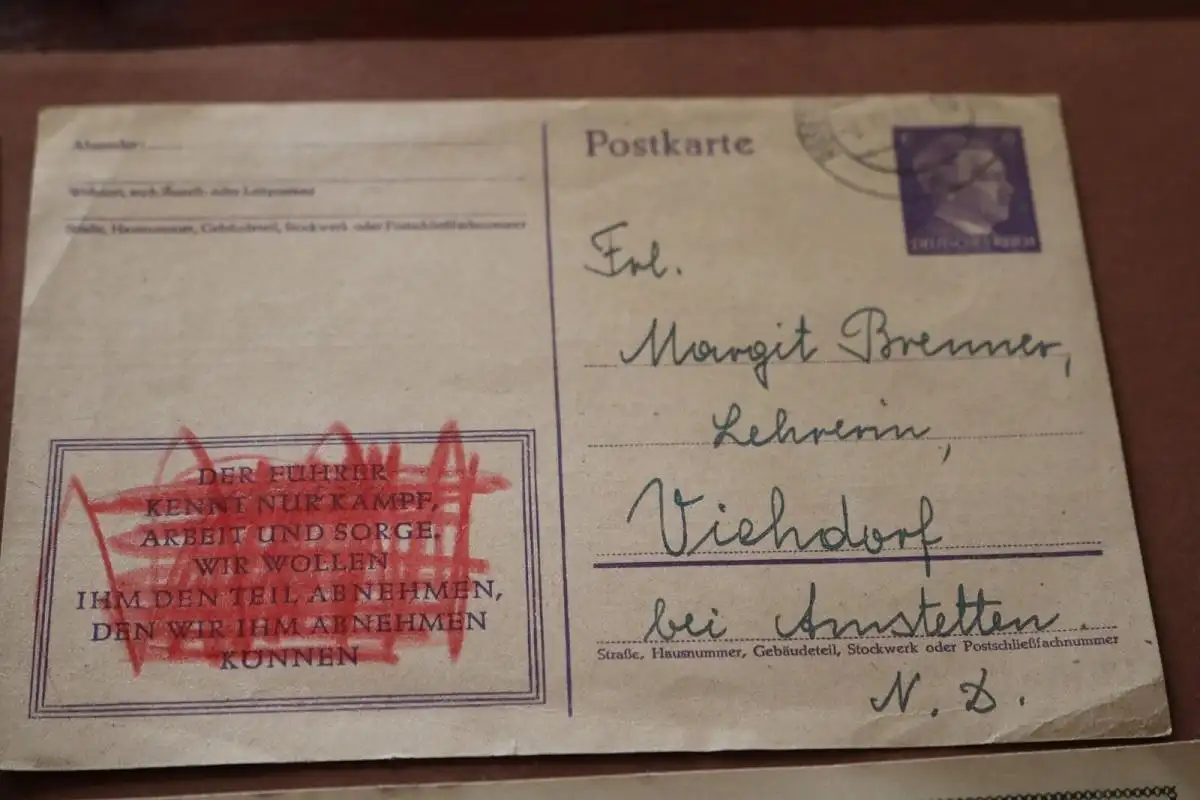 Absender:
Wohnort, auch Zustell- oder Leitpostamt
Straße, Hausnummer, Gebäudeteil, Stockwerk oder Postschließfachnummer
DER FÜHRER
KENNT NUR KAMPF,
ARBEIT UND SORGE.
WIR WOLLEN
IHM DEN TEIL ABNEHMEN,
DEN WIR IHM ABNEHMEN
KÖNNEN
Postkarte
DEUTSCHES REICH
Frl.
Margit Brenner,
Lehrerin,
Viehdorf
bei Amstetten.
Straße, Hausnummer, Gebäudeteil, Stockwerk oder Postschließfachnummer
N. D.